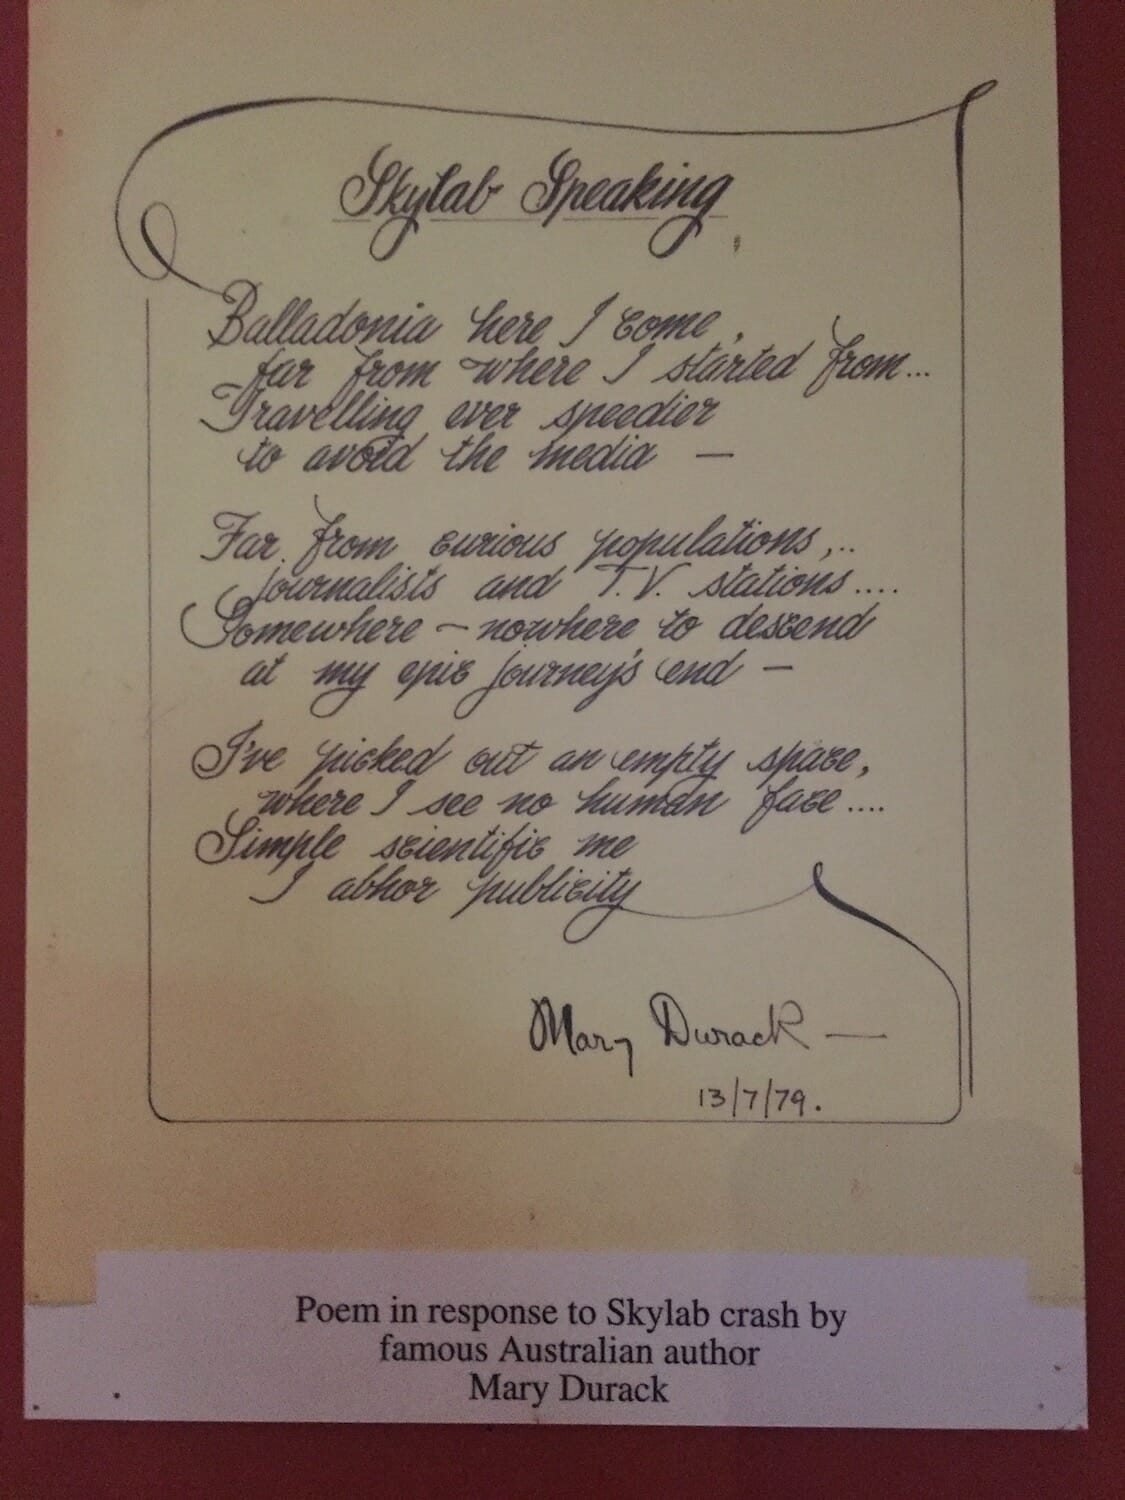 Skylab Speaking
Balladonia here I come,
far from where I started from...
Travelling ever speedier
to avoid the media —
Far from curious populations,..
journalists and T.V. stations....
Somewhere – nowhere to descend
at my epic journey's end –
I've picked out an empty space,
where I see no human face....
Simple scientific me
I abhor publicity
Mary Durack —
13/7/79.
Poem in response to Skylab crash by
famous Australian author
Mary Durack